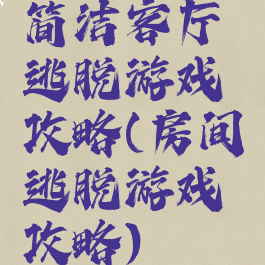 简洁客厅
逃脱游戏
攻略(房间
逃脱游戏
攻略)